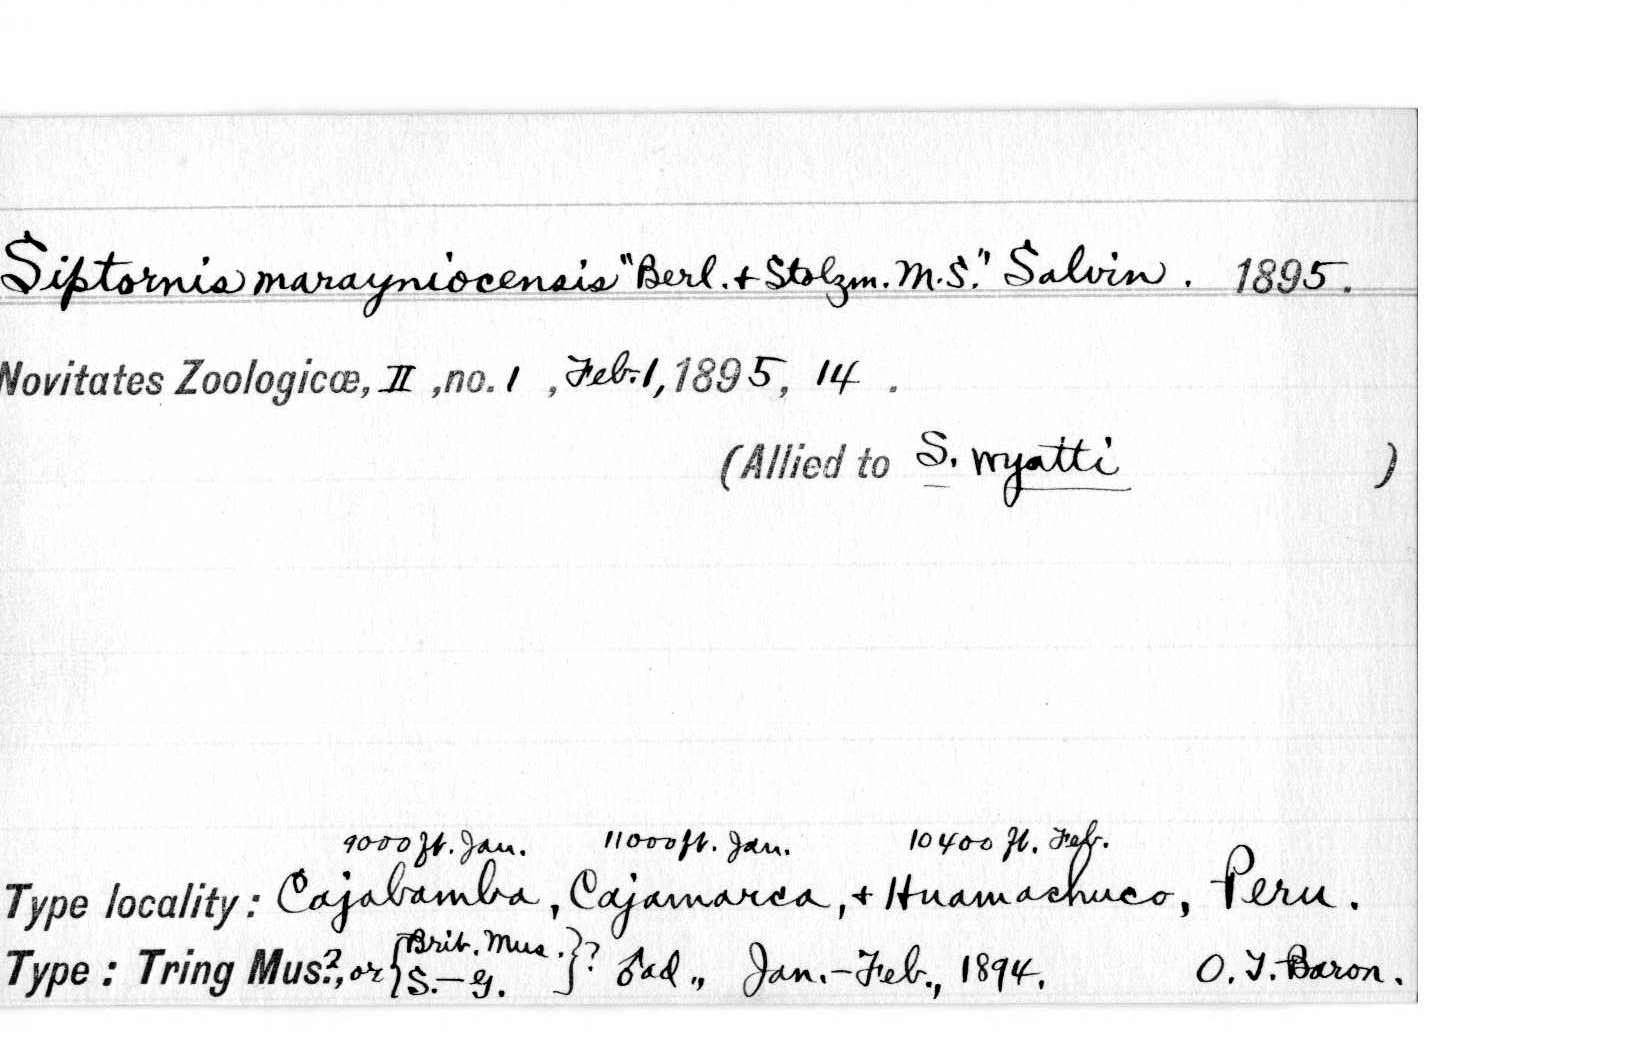 Siptornis marayniocensis "Berl. + Stolzm. M.S." Salvin. 1895.
Novitates Zoologicæ, II, no. 1, Feb. 1, 1895, 14.
(Allied to S. wyatti)
9000 ft. Jan. 11000 ft. Jan. 10400 ft. Feb.
Type locality: Cajabamba, Cajamarca, + Huamachuco, Peru.
Type: Tring Mus.?, or {Brit. Mus. S.-G.}? ♂ ad., Jan.-Feb., 1894. O. T. Baron.